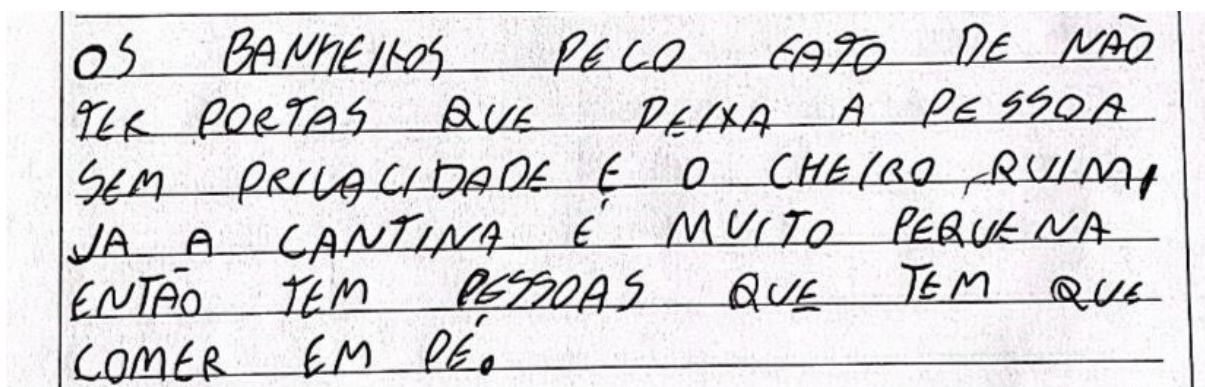 OS BANHEIROS PELO FATO DE NÃO
TER PORTAS QUE DEIXA A PESSOA
SEM PRIVACIDADE E O CHEIRO RUIM,
JA A CANTINA É MUITO PEQUENA
ENTÃO TEM PESSOAS QUE TEM QUE
COMER EM PÉ.